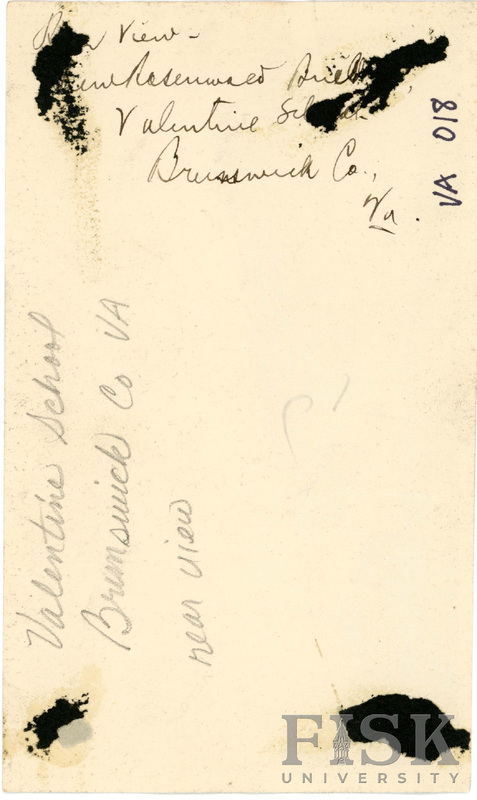 View -
Rosenwald
Valentine
Brunswick Co.,
Va.
VA 018
Valentine School
Brunswick Co VA
rear view
FISK
UNIVERSITY